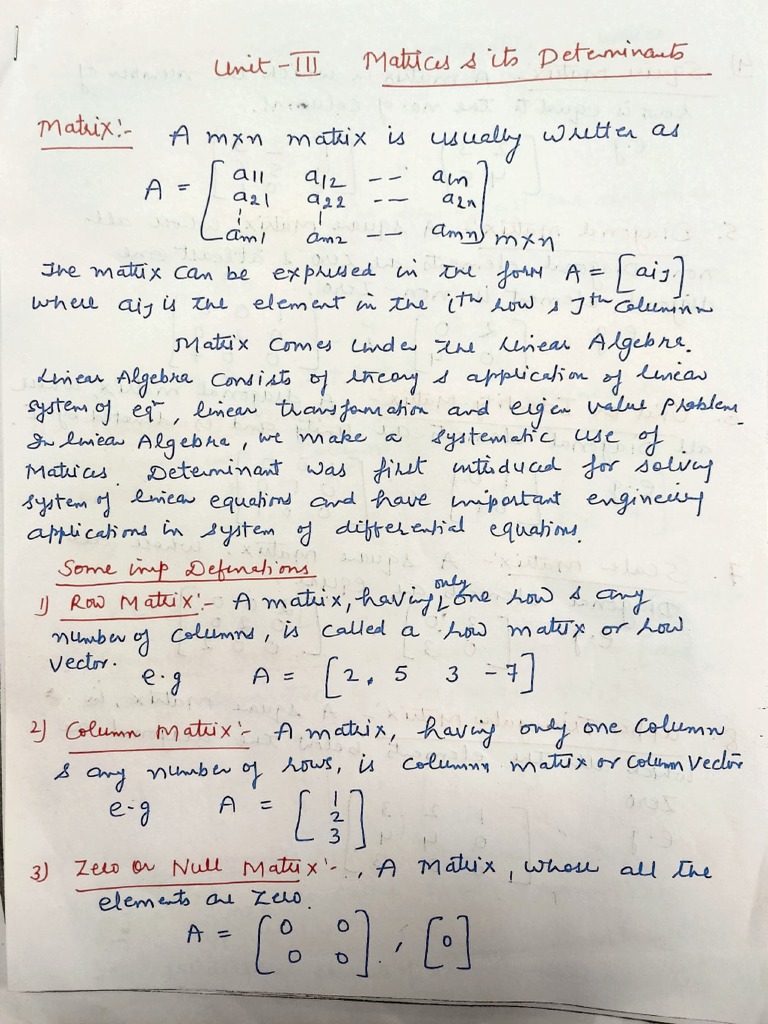 Unit - III Matrices & its Determinants
Matrix:- A mxn matrix is usually written as
A = [ a11 a12 -- a1n
a21 a22 -- a2n
am1 am2 -- amn ] mxn
The matrix can be expressed in the form A = [aij]
where aij is the element in the ith row & jth column
Matrix comes under the Linear Algebra.
Linear Algebra consists of theory & application of linear
system of eqn, linear transformation and eigen value problem.
In linear Algebra, we make a systematic use of
Matrices. Determinant was first introduced for solving
system of linear equations and have important engineering
applications in system of differential equations.
Some imp Definations
1) Row Matrix:- A matrix, having only one row & any
number of columns, is called a row matrix or row
vector.
e.g A = [2, 5 3 -7]
2) Column Matrix:- A matrix, having only one column
& any number of rows, is column matrix or column vector
e-g A = [ 1
2
3 ]
3) Zero or Null Matrix:-, A Matrix, whose all the
elements are zero.
A = [ 0 0
0 0 ], [0]